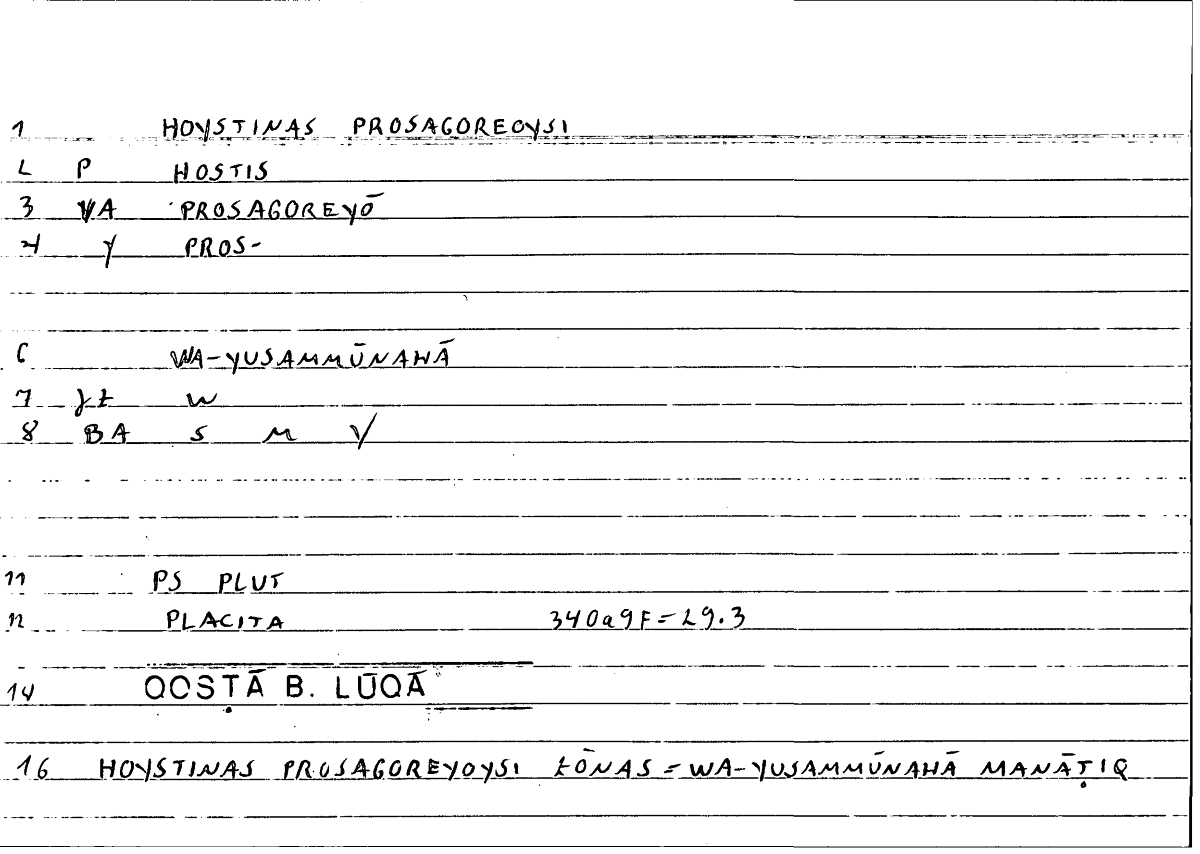 1 HOYSTINAS PROSAGOREOYSI
2 P HOSTIS
3 VA PROSAGOREYŌ
4 Y PROS-
6 WA-YUSAMMŪNAHĀ
7 ɟŁ W
8 BA S M Y
11 PS PLUT
12 PLACITA 340a9F=29.3
14 QOSṬĀ B. LŪQĀ
16 HOYSTINAS PROSAGOREYOYSI ŁŌNAS = WA-YUSAMMŪNAHĀ MANĀṬIQ